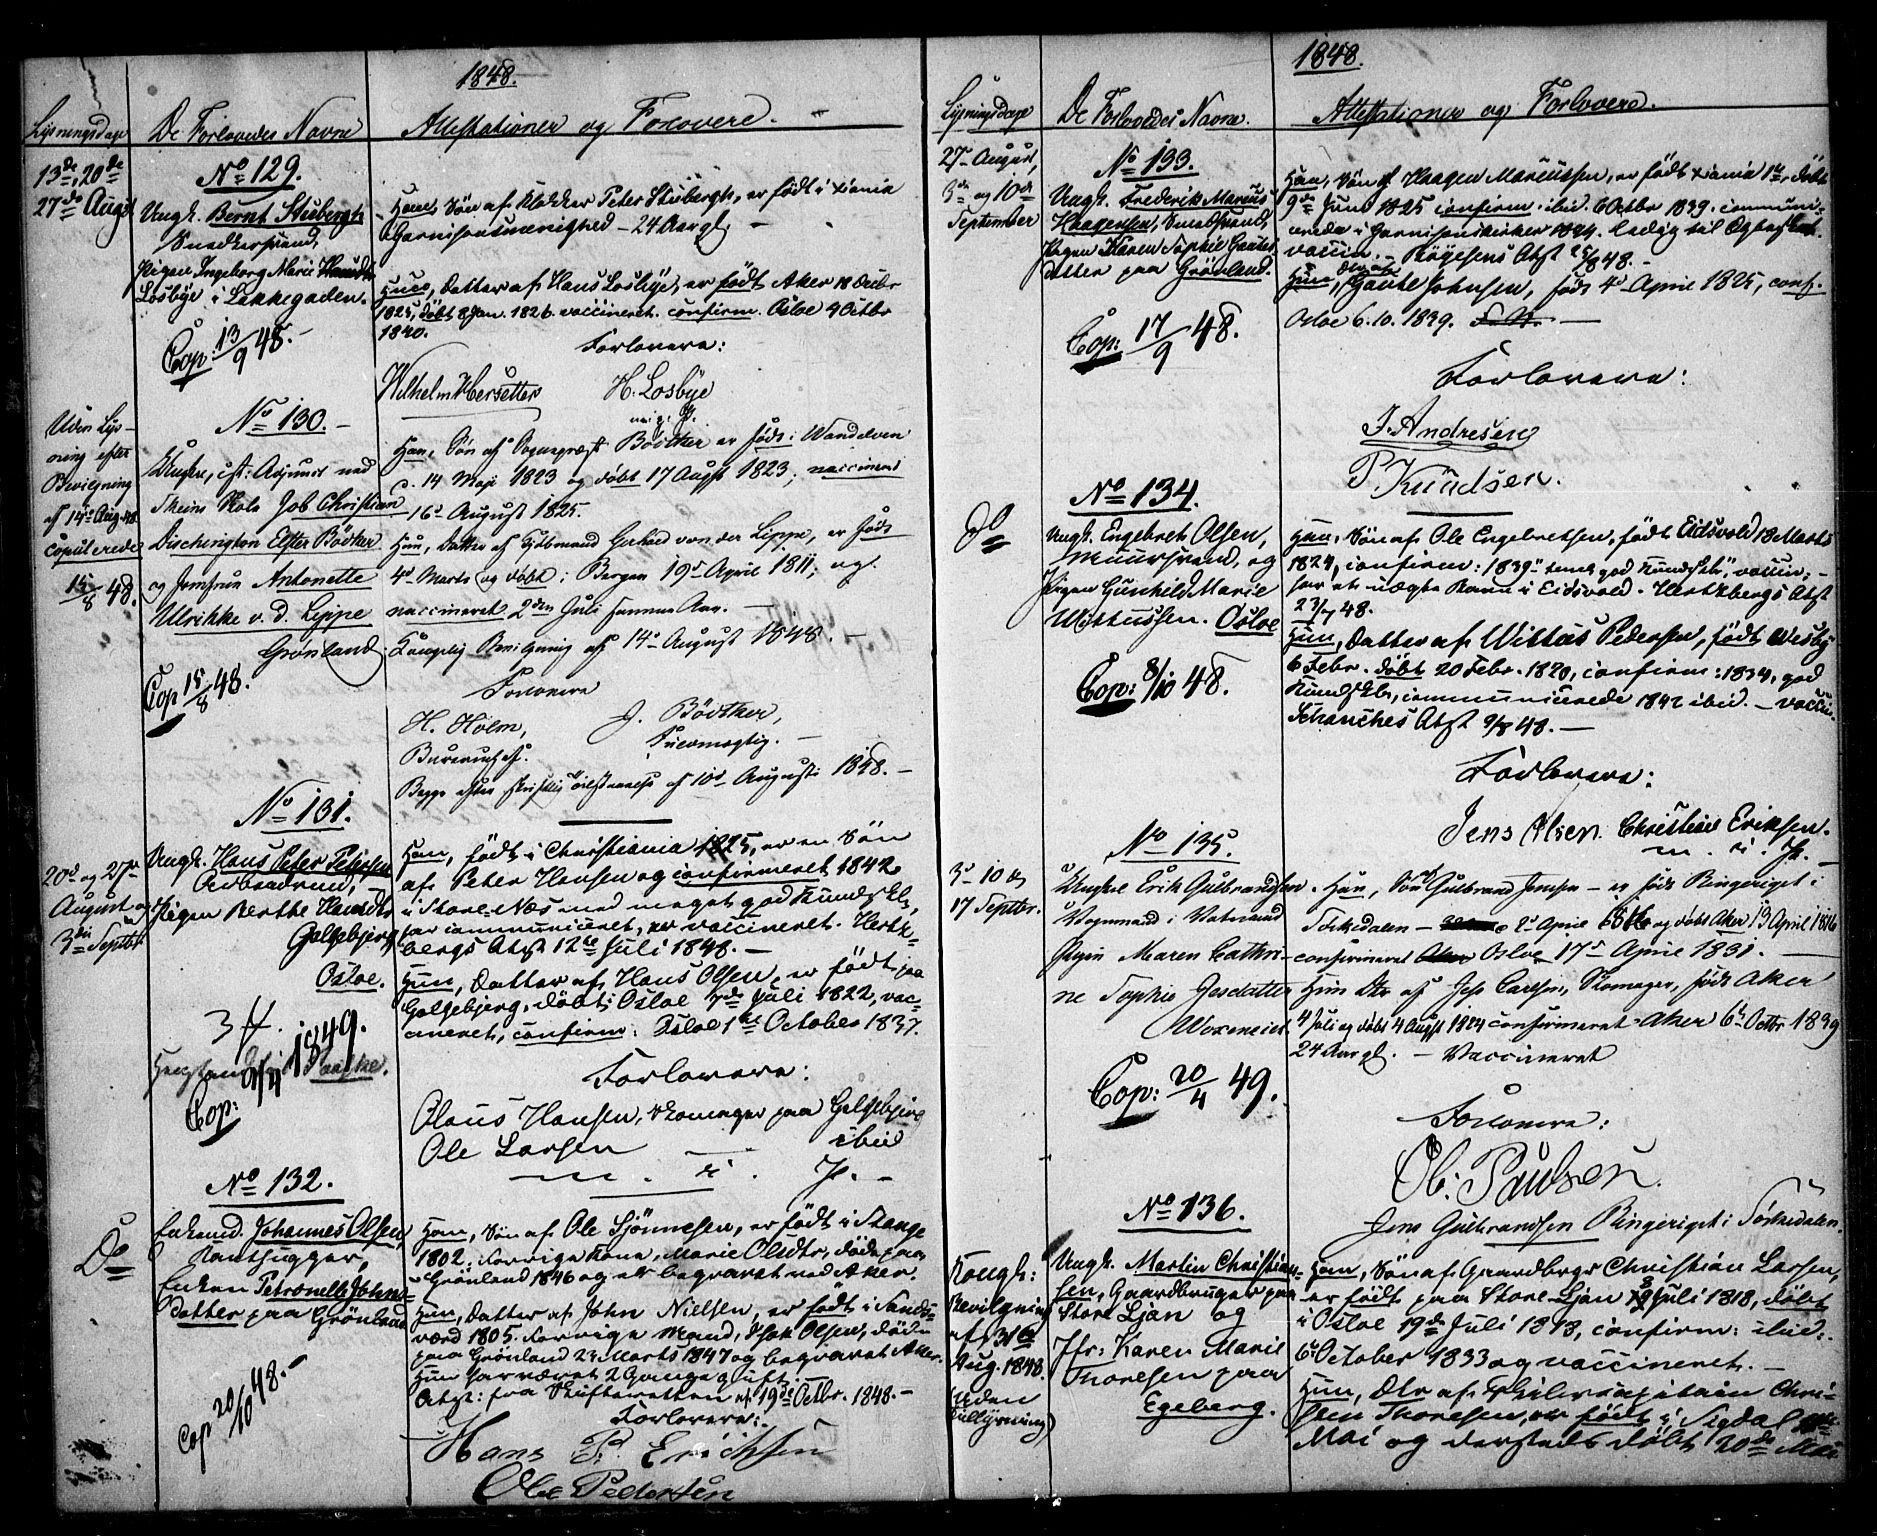 1848.
Lysningsdage
De Forlovedes Navne
Attestationer og Forlovere.
13de, 20de
27de August
No 129.
Ungk. Bernt Stubergh
Snedkersvend,
Pigen Ingeborg Marie Hansdtr
Losbye i Lakkegaden.
Cop: 13/9 48.
Han, Søn af Klokker Peter Stubergh, er født i Xiania
Garnisonsmenighed - 24 Aar gl. -
Hun, Datter af Hans Losbye, er født Aker 18 Decbr
1825, døbt 8 Jan. 1826. vaccineret. confirm. Osloe 4 Octbr
1840.
Forlovere:
Wilhelm Hersetter
H. Losbye
m. i. P.
Uden Lys-
ning efter
Bevilgning
af 14de Aug. 48
copulerede
15/8 48.
No 130.
Ungkr., Adjunct ved
Skiens Skole Job Christian
Dischington Elster Bödtker
og Jomfru Antonette
Ulrikke v. d. Lippe
Grønland.
Cop 15/8 48.
Han, Søn af Sognepræst Bödtker er født i
14 Maji 1823 og døbt 17 Augst 1823; vaccineret
16de August 1825.
Hun, Datter af Gerhard von der Lippe, er født
4de Marts og døbt i Bergen 19de April 1811; og
vaccineret 2den Juli samme Aar. -
Kongelig Bevilgning af 14de August 1848. -
Forlovere
H. Holm,
J. Bödtker,
Bureauchef.
Begge efter skriftlig af 10de August 1848. -
20de og 27de
August og
3die Septbr
No 131.
Ungk. Hans Peter Petersen
Arbeidsmand,
Pigen Berthe Hansdtr
Galgebjerg
Osloe.
3 #.
2/4 1849.
Cop:
Han, født i Christiania 1825, er en Søn
af Peter Hansen og confirmeret 1842
i Store-Næs med meget god Kundskb,
har communiceret, er vaccineret. Hertz-
bergs Atst 12te Juli 1848. -
Hun, Datter af Hans Olsen, er født paa
Galgebjerg, døbt i Osloe 7de Juli 1822, vac-
cineret, confirm: Osloe 1ste October 1837.
Forlovere:
Olaus Hansen, Skomager paa Galgebjerg
Ole Larsen ibid
m. i. P. -
Do
No 132.
Enkemd. Johannes Olsen,
Enken Petronelle Johns-
datter paa Grønland
Cop 20/10 48. -
Han, Søn af Ole Sjönnesen, er født i Stange
1802. forrige Kone, Marie Olsdtr, døde paa
Grønland 1846 og er begravet ved Aker.
Hun, Datter af John Nielsen, er født i Sands-
værd 1805. forrige Mand, Isak Olsen, døde
paa Grønland 23 Marts 1847 og begravet Aker.
Hun har været 2 Gange gift. -
Atst: fra Skifteretten af 19de Octbr. 1848 -
Forlovere:
Hans P. Erichsen
Ole Pedersen
1848.
Lysningsdage
De Forlovedes Navne.
Attestationer og Forlovere.
27de August,
3die og 10de
September
No 133.
Ungk. Frederik Marcus
Haagensen, Smedsvend,
Pigen Karen Sophie Gautes
datter paa Grønland.
Cop: 17/9 48.
Han, Søn af Haagen Marcussen, er født Xiania 1ste, døbt
9de Juni 1825 confirm: ibid. 6 Octbr 1839. commun-
vaccin. - Röyesens Atst 25/8 48. -
Hun, Gaute Johnsen, født 4de April 1825, conf.
Osloe 6. 10. 1839.
Forlovere:
J. Andresen
P. Knudsen.
do
No 134.
Ungk. Engebret Olsen,
Muursvend, og
Pigen Gunhild Marie
Wittussen. Osloe
Cop: 8/10 48.
Han, Søn af Ole Engebretsen, født Eidsvold 18 Marts
1824, confirm: 1839 god Kundskb, vaccin; -
har et uægte Barn i Eidsvold. Hertzbergs Atst
23/7 48.
Hun, Datter af Wittus Pedersen, født Wesby
6 Febr. døbt 20 Febr. 1820, confirm: 1834, god
Kundskb, communicerede 1842 ibid. - vaccin.
Schanches Atst 9/8 48. -
Forlovere:
Jens Olsen. Christian Eriksen.
m. i. P. -
3de 10de
17 Septbr.
No 135.
Ungkl Erik Gulbrandsen
Vognmand i Vaterland
Pigen Maren Cathri-
ne Sophie Jesdatter
Woxeneiet
Cop: 20/4 49.
Han, Søn Gulbrand Jensen - er født Ringeriget i
Sørkedalen - 2de April 1816 og døbt Aker 13 April 1816
confirmeret Osloe 17de April 1831. -
Hun Dtr af Jes Carlsen, Skomager, født Aker
4 Juli og døbt 4 Augst 1824 confirmeret Aker 6te Octbr 1839
24 Aar gl. - Vaccineret
Forlovere:
Ol: Paulsen.
Jens Gulbrandsen Ringeriget i Sørkedalen.
Kongl:
Bevilgning
af 31te
Aug. 1848
(Uden
Tillysning)
No 136.
Ungk. Martin Christian-
sen, Gaardbruger paa
Store Ljan og
Jfr: Karen Marie
Thoresen paa
Egeberg.
Han, Søn af Gaardbrgr Christian Larsen,
er født paa Store Ljan Juli 1818, døbt
i Osloe 19de Juli 1818, confirm: ibid.
6te October 1833 og vaccineret. -
Hun, Dtr af Skibscapitain Chri-
sten Thoresen, er født i Sigdal
Mai og dersteds døbt 20de Mai